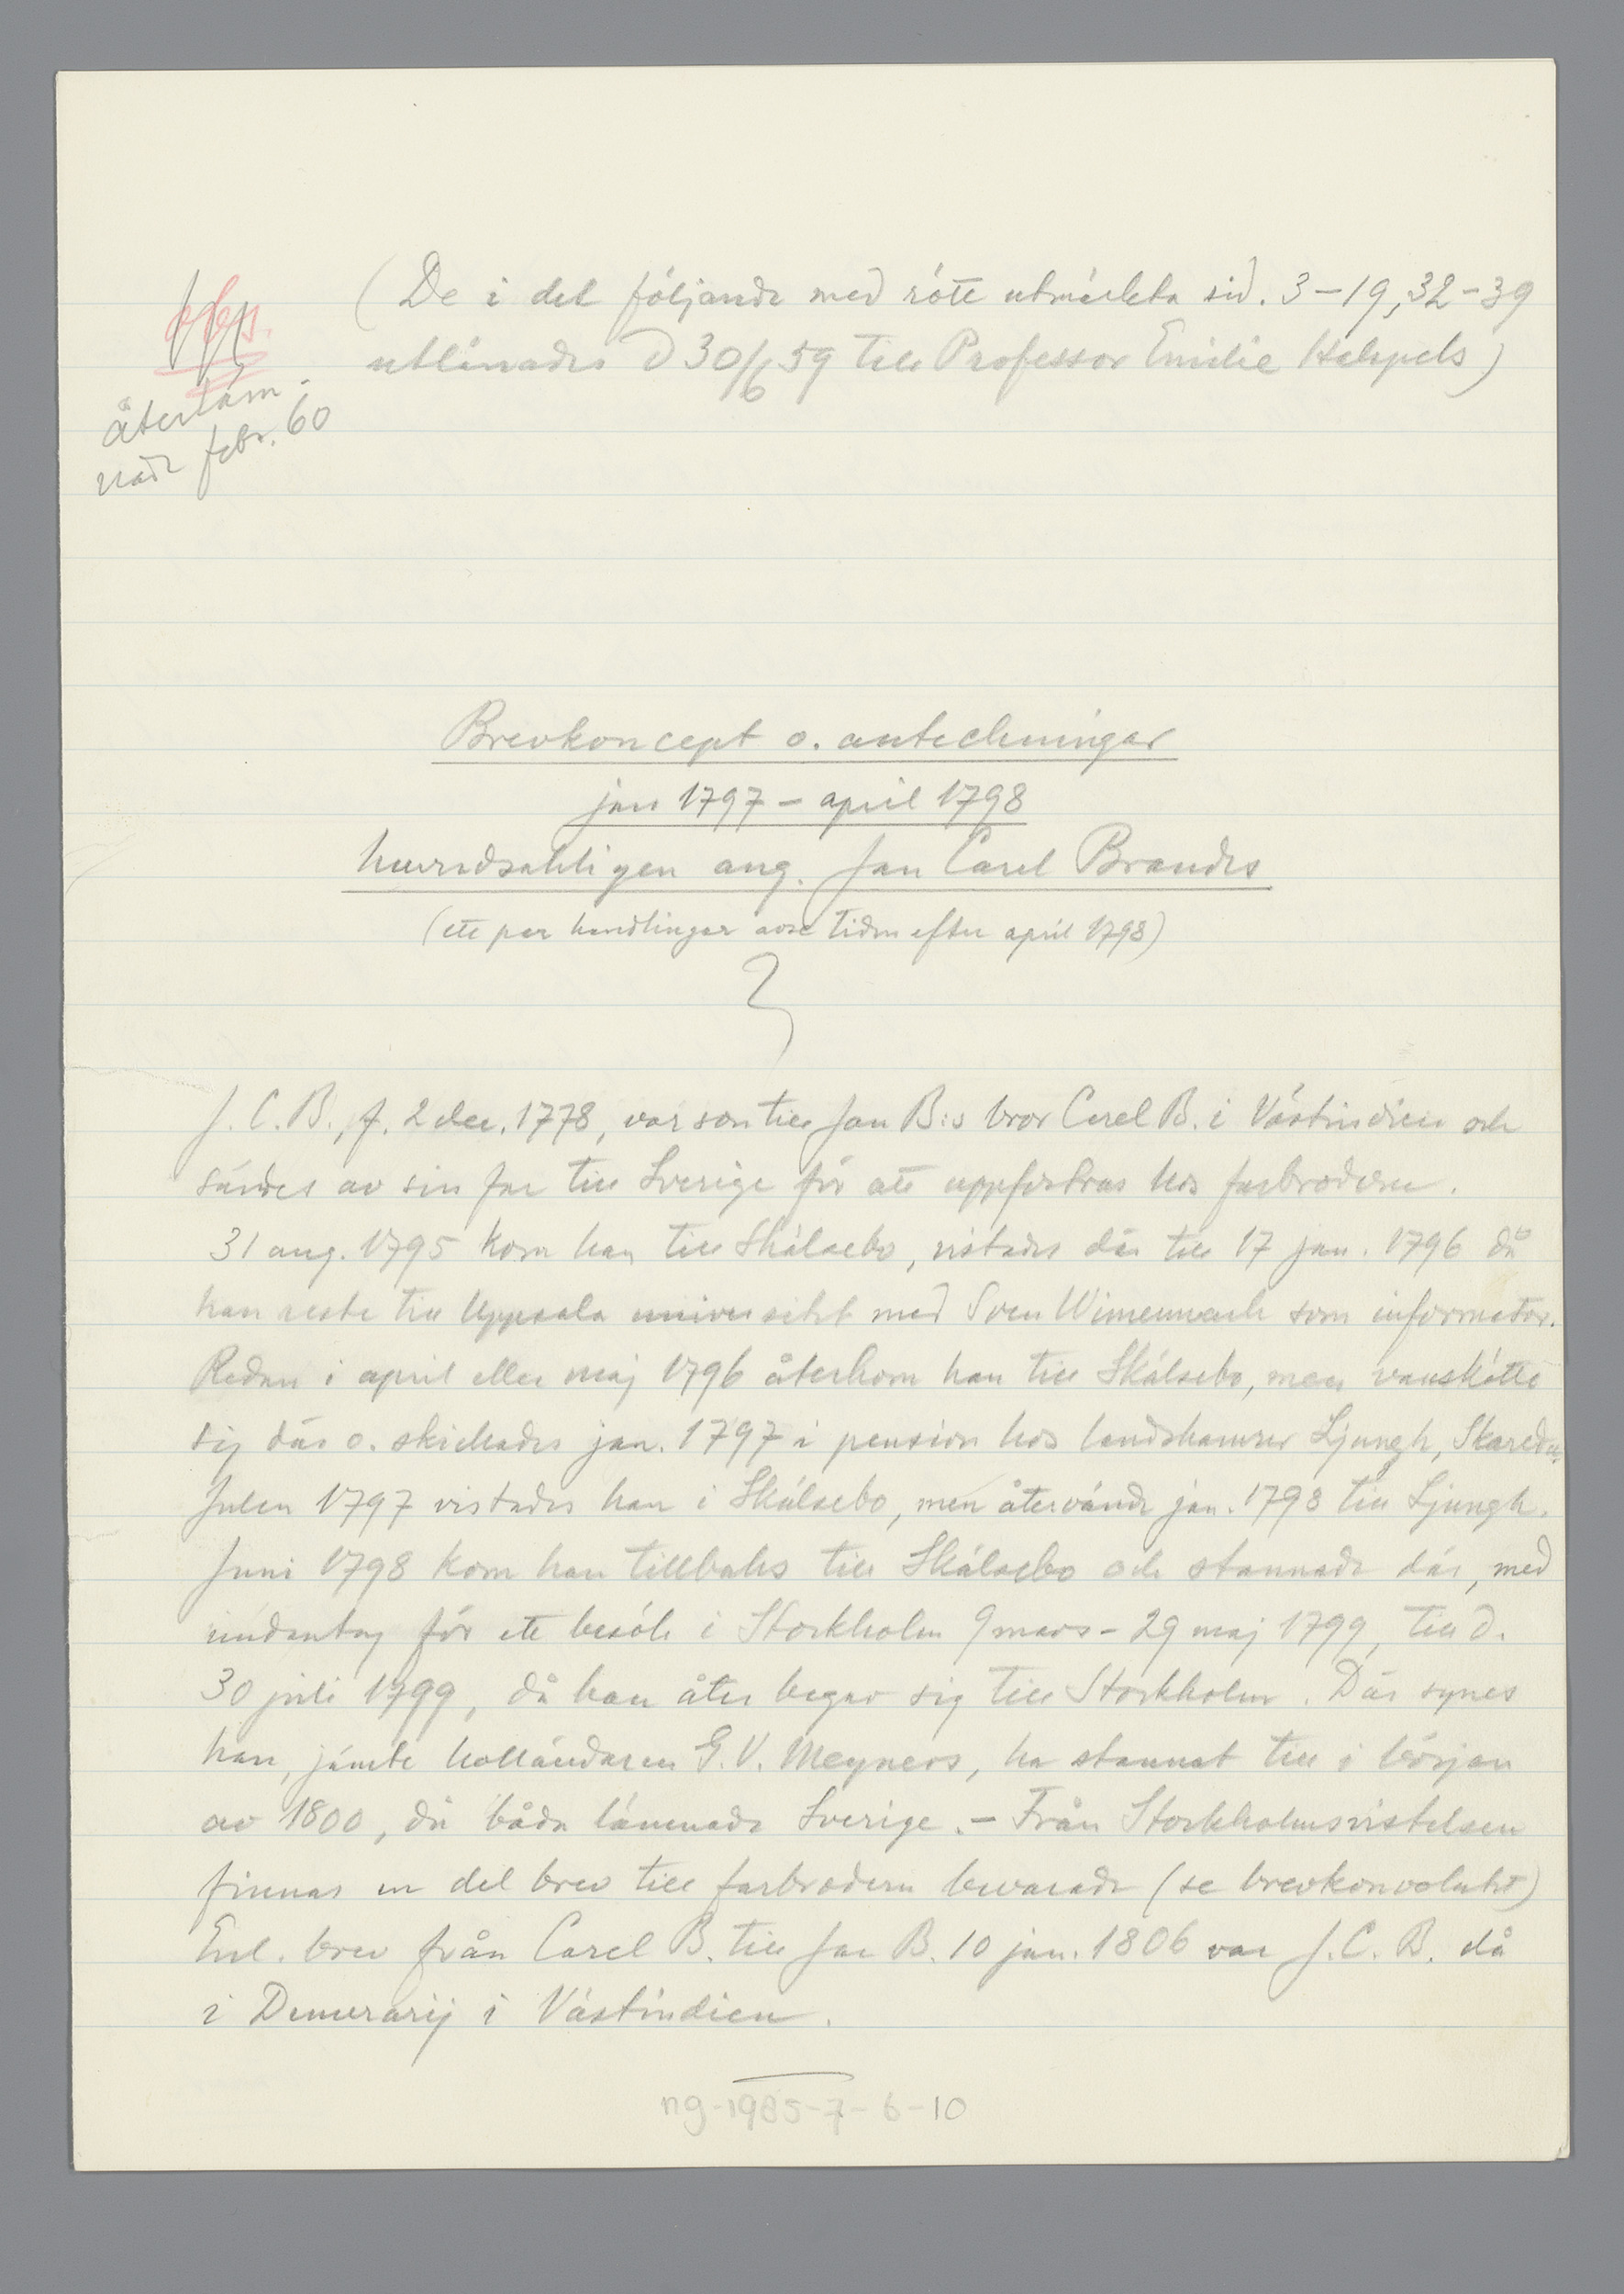 (De i det följande med rött utmärkta sid. 3–19, 32–39
utlånades d 30/6 59 till Professor Emilie
obs.
återläm-
nade febr. 60
Brevkoncept o. anteckningar
jan 1797 – april 1798
huvudsakligen ang. Jan Carel Brandes
(ett par handlingar avse tiden efter april 1798)
J. C. B., f. 2 dec. 1778, var son till Jan B:s bror Carel B. i Västindien och
sändes av sin far till Sverige för att uppfostras hos farbrodern.
31 aug. 1795 kom han till Skälsebo, vistades där till 17 jan. 1796 då
han reste till Uppsala universitet med Sven som informator.
Redan i april eller maj 1796 återkom han till Skälsebo, men vanskötte
sig där o. skickades jan. 1797 i pension hos landskamrer Ljungh, Skareda.
Julen 1797 vistades han i Skälsebo, men återvände jan. 1798 till Ljungh.
Juni 1798 kom han tillbaks till Skälsebo och stannade där, med
undantag för ett besök i Stockholm 9 mars – 29 maj 1799, till d.
30 juli 1799, då han åter begav sig till Stockholm. Där synes
han, jämte holländaren G. V. Meyners, ha stannat till i början
av 1800, då båda lämnade Sverige. – Från Stockholmsvistelsen
finnas en del brev till farbrodern bevarade (se brevkonvolutet)
Enl. brev från Carel B. till Jan B. 10 jan. 1806 var J. C. B. då
i Demerarij i Västindien.
ng-1985-7-6-10